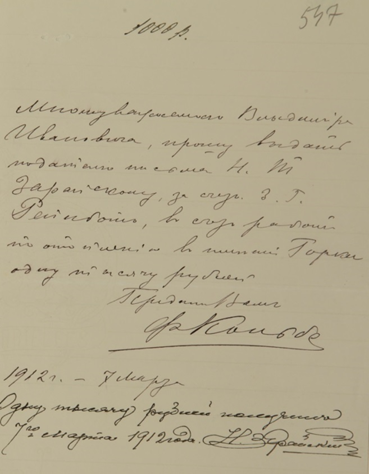 547
1000 р.
Многоуважаемого Владимiра
Ивановича, прошу выдать
подателю письма Н. П.
Зарайскому, за счет З. Г.
Рейнботъ, в счет работъ
по отоплению в имении Горки
одну тысячу рублей
Преданный Вамъ
1912 г. – 7 марта
Одну тысячу рублей получилъ
7го марта 1912 года. Н. Зарайский